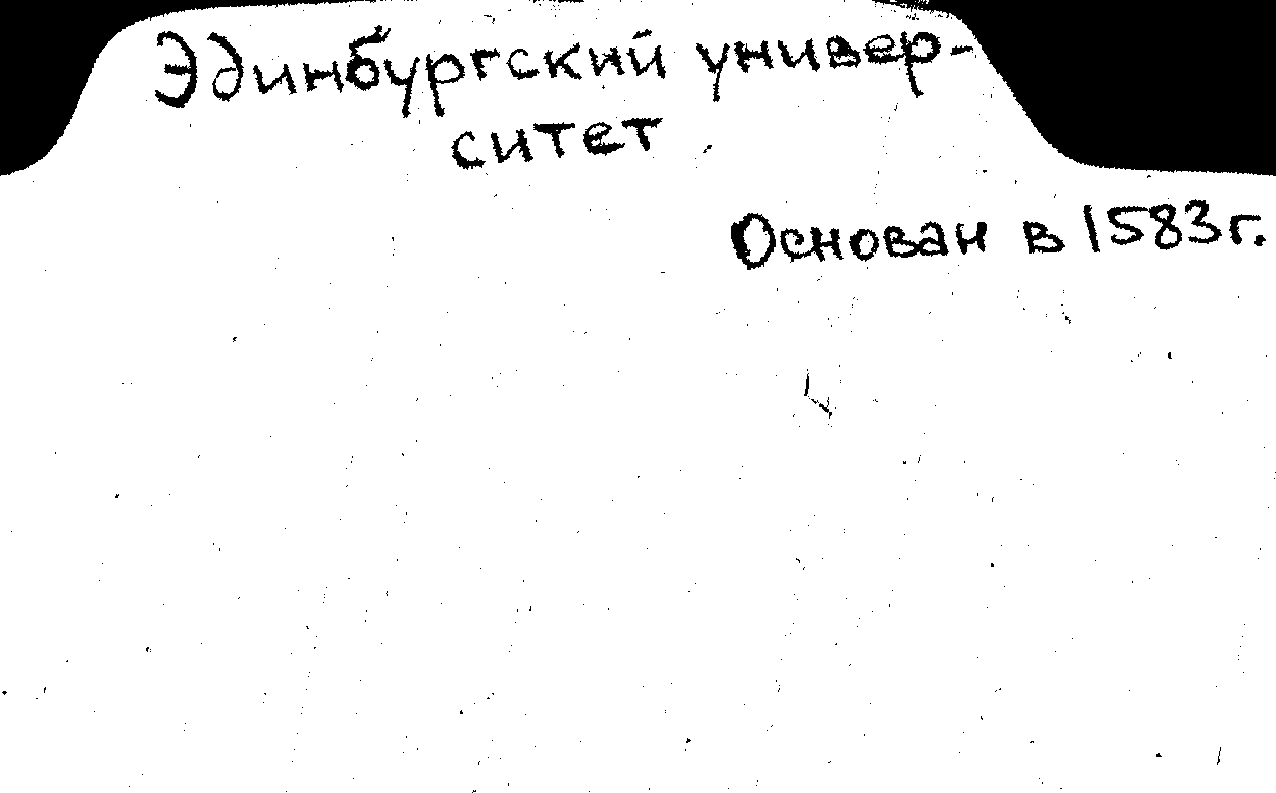 Эдинбургский универ-
ситет
Основан в 1583г.